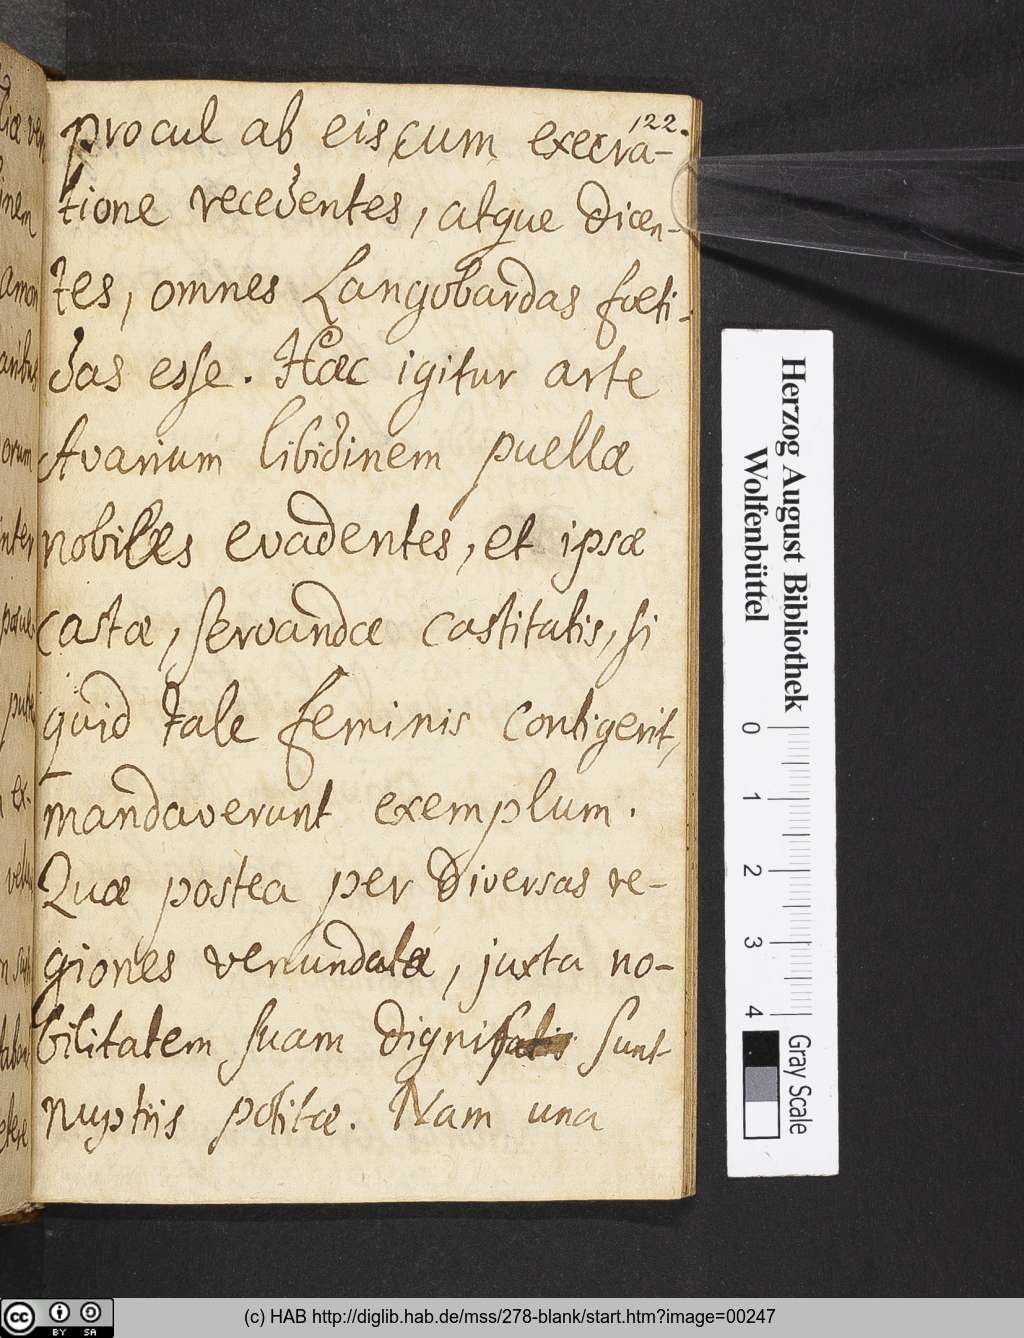 122.
procul ab eis cum execra-
tione recedentes, atque dicen-
tes, omnes Langobardas foeti-
das esse. Hæc igitur arte
Avarium libidinem puellæ
nobiles evadentes, et ipsæ
castæ, servandæ castitatis, si
quid tale feminis contigerit,
mandaverunt exemplum.
Quæ postea per diversas re-
giones venundatæ, juxta no-
bilitatem suam dignis sunt
nuptiis potitæ. Nam una
Herzog August Bibliothek
Wolfenbüttel
0 1 2 3 4
Gray Scale
cc BY SA
(c) HAB http://diglib.hab.de/mss/278-blank/start.htm?image=00247